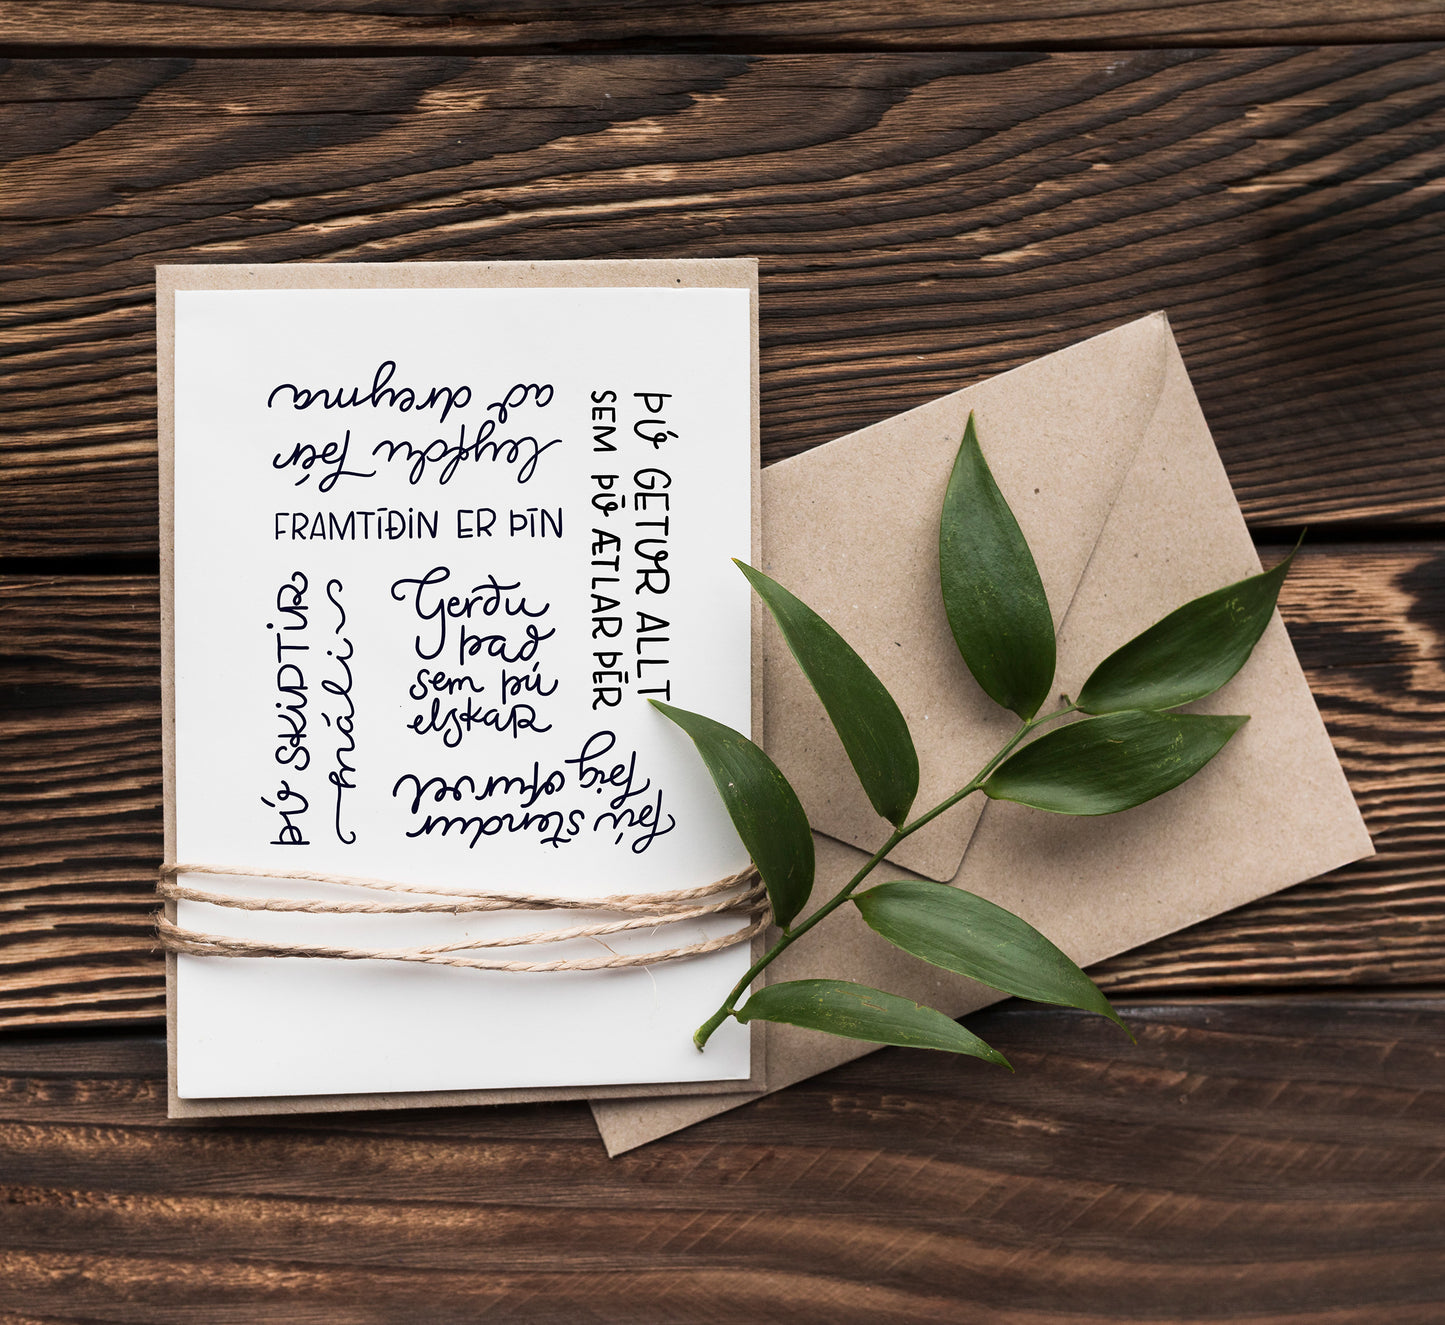 leyfðu þér
að dreyma
FRAMTÍÐIN ER ÞÍN
ÞÚ GETUR ALLT
SEM ÞÚ ÆTLAR ÞÉR
ÞÚ SKIPTIR
máli
Gerðu
það
sem þú
elskar
þú stendur
þig ofurvel